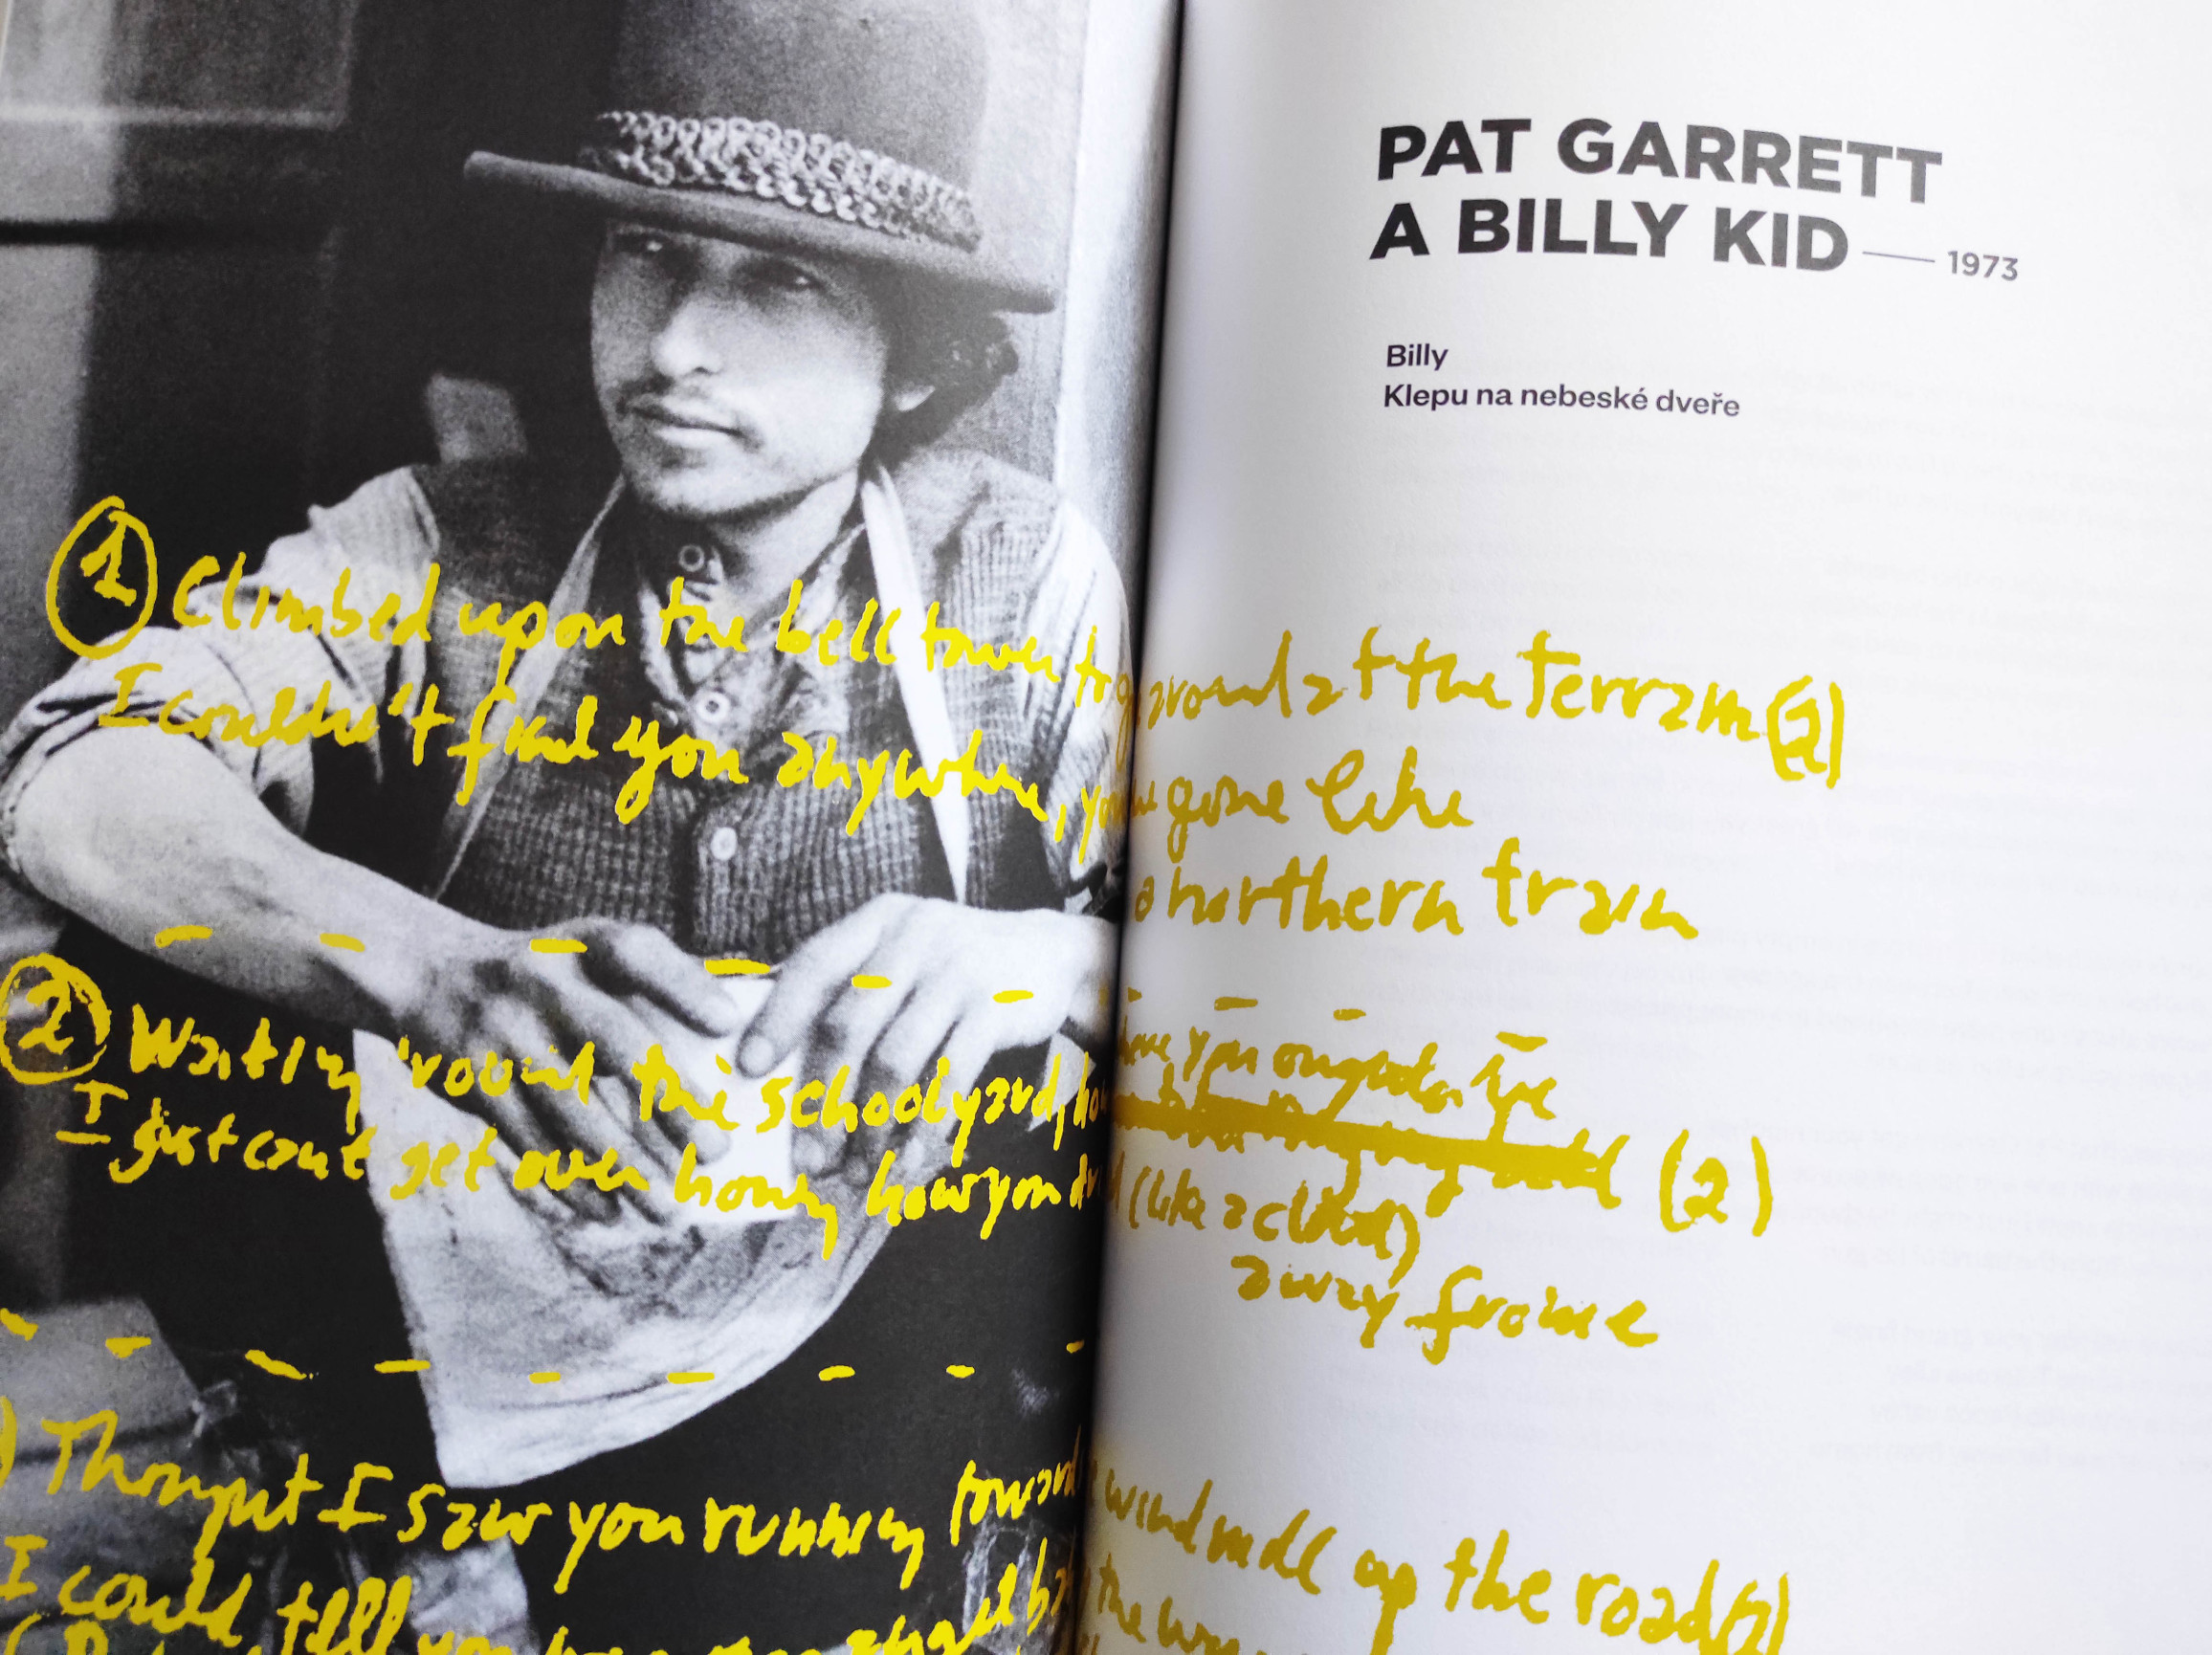 PAT GARRETT
A BILLY KID — 1973
Billy
Klepu na nebeské dveře
① Climbed upon the bell tower to g around at the terrain (2)
I couldn't find you anywhere, you gone like
a northern train
② Waitin 'round the schoolyard, how you oughta be
(2)
I just cant get over honey how you (like a cloud)
away from me
Thought I saw you running toward windmill up the road (2)
I could tell you
the way